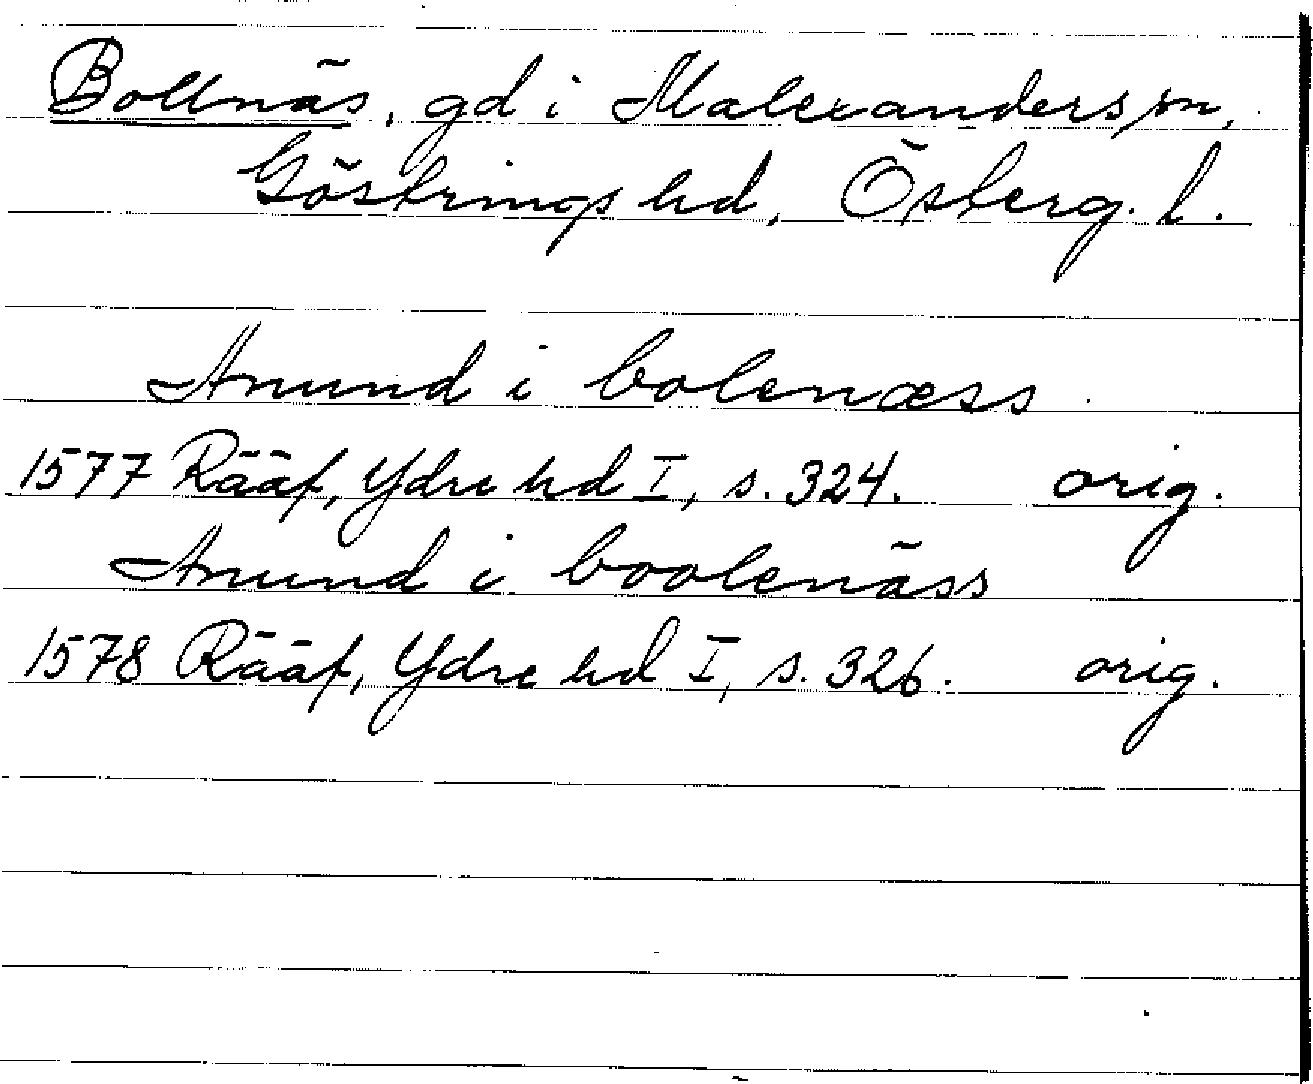 Bollnäs, gd i Malexanders sn,
Göstrings hd, Österg. l.
Anund i bolenæss
1577 Rääf, Ydre hd I, s. 324. orig.
Anund i boolenäss
1578 Rääf, Ydre hd I, s. 326. orig.